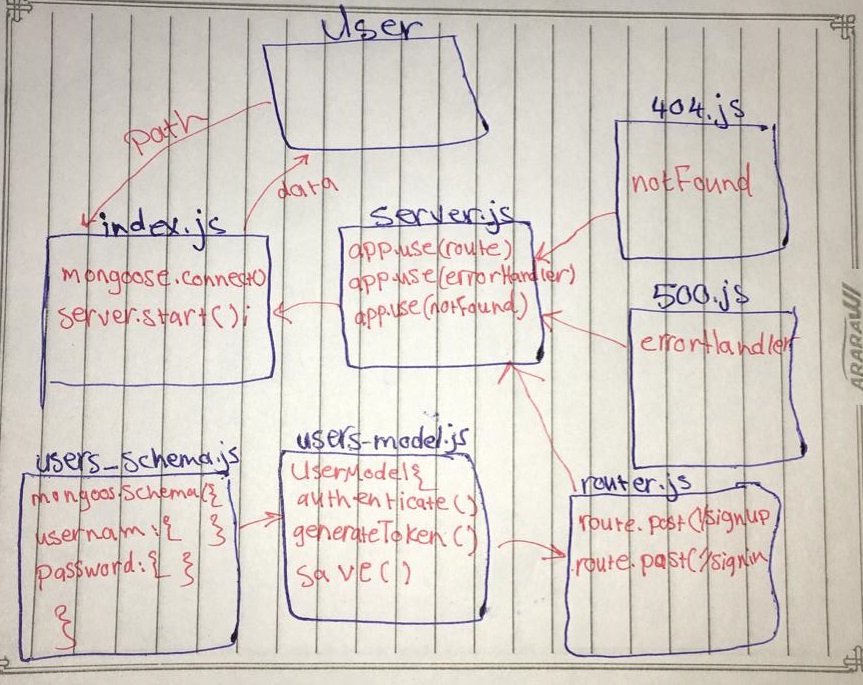 User
path
data
404.js
notFound
index.js
mongoose.connect()
server.start();
server.js
app.use(route)
app.use(errorHandler)
app.use(notFound)
500.js
errorHandler
users_schema.js
mongoos.Schema({
usernam:{ }
password:{ }
}
users-model.js
UserModel{
authenticate()
generateToken()
save()
router.js
route.post('/signup
route.post('/signin